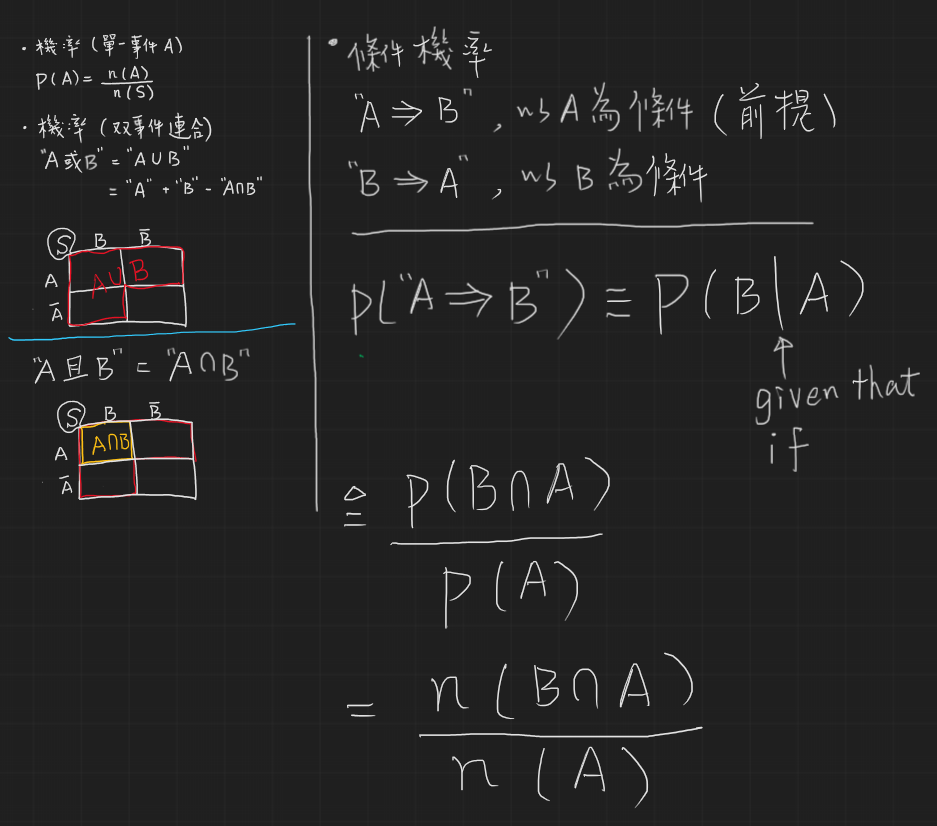 ・機率 (單一事件 A)
P(A) = n(A) / n(S)
・機率 (双事件連合)
"A或B" = "A∪B"
= "A" + "B" - "A∩B"
S B B̅
A A∪B
A̅
"A且B" = "A∩B"
S B B̅
A A∩B
A̅
・條件機率
"A⇒B", 以A為條件(前提)
"B⇒A", 以B為條件
P("A⇒B") ≡ P(B|A)
↑
given that
if
≙ P(B∩A) / P(A)
= n(B∩A) / n(A)